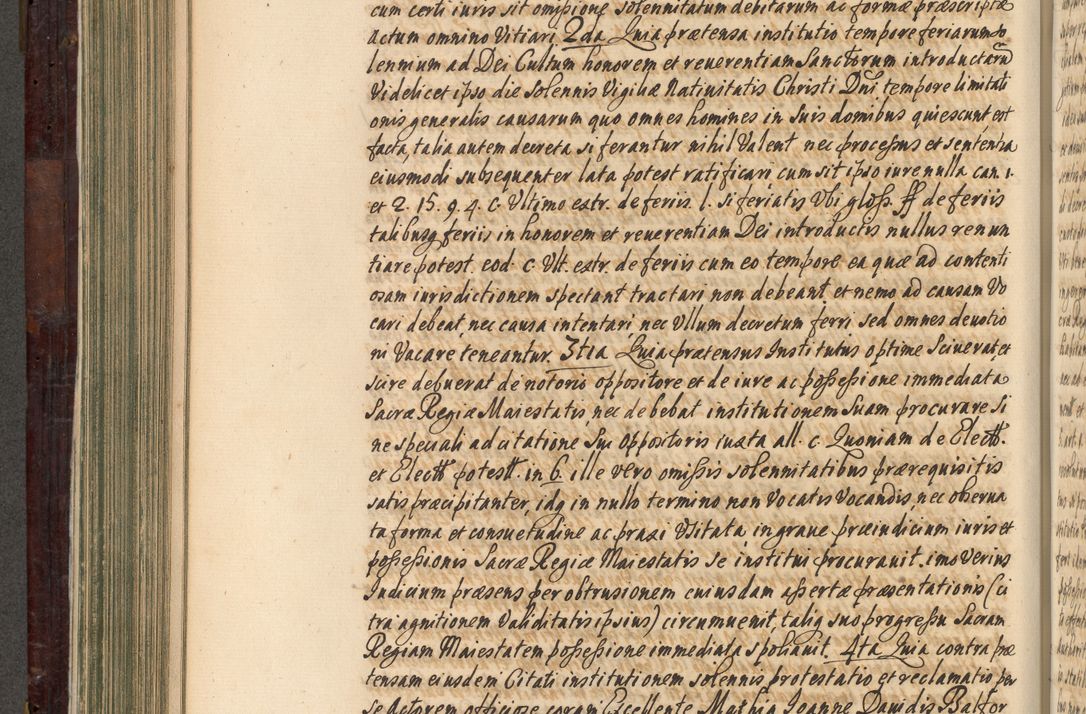 cum certi iuris sit omissione solennitatum debitarum ac formæ præscriptæ
actum omnino Vitiari 2da Quia prætensa institutio tempore feriarum so
lennium ad Dei Cultum honorem et reuerentiam Sanctorum introductarū
Videlicet ipso die solennis Vigiliæ Natiuitatis Christi Dni tempore limitati
onis generalis causarum quo omnes homines in suis domibus quiescunt est
facta, talia autem decreta si ferantur nihil Valent nec processus et sententia
eiusmodi subsequenter lata potest ratificari cum sit ipso iure nulla can. 1.
et 2. 15. q. 4. c. Vltimo extr. de feriis. l. si feriatis Vbi gloss. ff de feriis
talibusq feriis in honorem et reuerentiam Dei introductis nullus renun
tiare potest. eod. c. Vlt. extr. de feriis cum eo tempore ea quæ ad contenti
osam iurisdictionem spectant tractari non debeant et nemo ad causam Vo
cari debeat, nec causa intentari, nec Vllum decretum ferri sed omnes deuotio
ni Vacare teneantur. 3tia Quia prætensus Institutus optime Sciuerat et
scire debuerat de notorio oppositore et de iure ac possessione immediata
Sacræ Regiæ Maiestatis, nec debebat institutionem Suam procurare Si
ne speciali adcitatione Sui oppositoris iuxta all. c. Quoniam de Electt.
et Electt potestt. in 6. ille vero omissis solennitatibus prærequisitis
satis præcipitanter, idq in nullo termino non Vocatis Vocandis, nec obserua
ta forma et consuetudine ac praxi Vsitata, in graue præiudicium iuris et
possessionis Sacræ Regiæ Maiestatis se institui procurauit. imo Verius
Iudicium præsens per obtrusionem cuiusdam assertæ præsentationis (ci
tra agnitionem Validitatis ipsius) circumuenit, taliq suo progressu Sacram
Regiam Maiestatem possessione immediata spoliauit. 4ta Quia contra præ
tensam eiusdem Citati institutionem solennis protestatio et reclamatio per
se Actorem officiose coram Excellente Mathia Joanne Dauidis Bastor